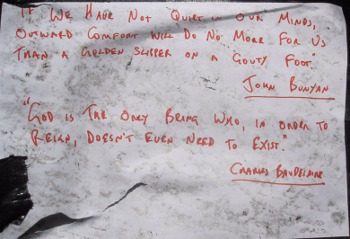 IF WE HAVE NOT QUIET IN OUR MINDS,
OUTWARD COMFORT WILL DO NO MORE FOR US
THAN A GOLDEN SLIPPER ON A GOUTY FOOT.
JOHN BUNYAN
"GOD IS THE ONLY BEING WHO, IN ORDER TO
REIGN, DOESN'T EVEN NEED TO EXIST."
CHARLES BAUDELAIRE